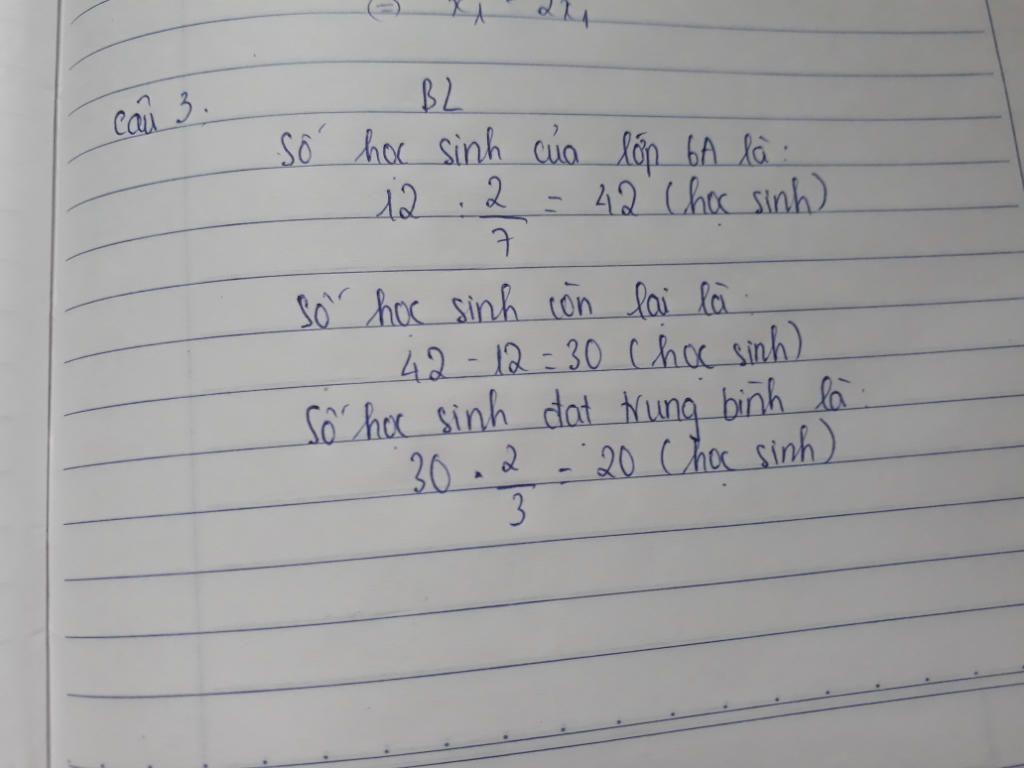 (=) x₁ 2x₁
Câu 3. BL
Số học sinh của lớp 6A là:
12 : 2/7 = 42 (học sinh)
Số học sinh còn lại là:
42 - 12 = 30 (học sinh)
Số học sinh đạt trung bình là:
30 . 2/3 = 20 (học sinh)